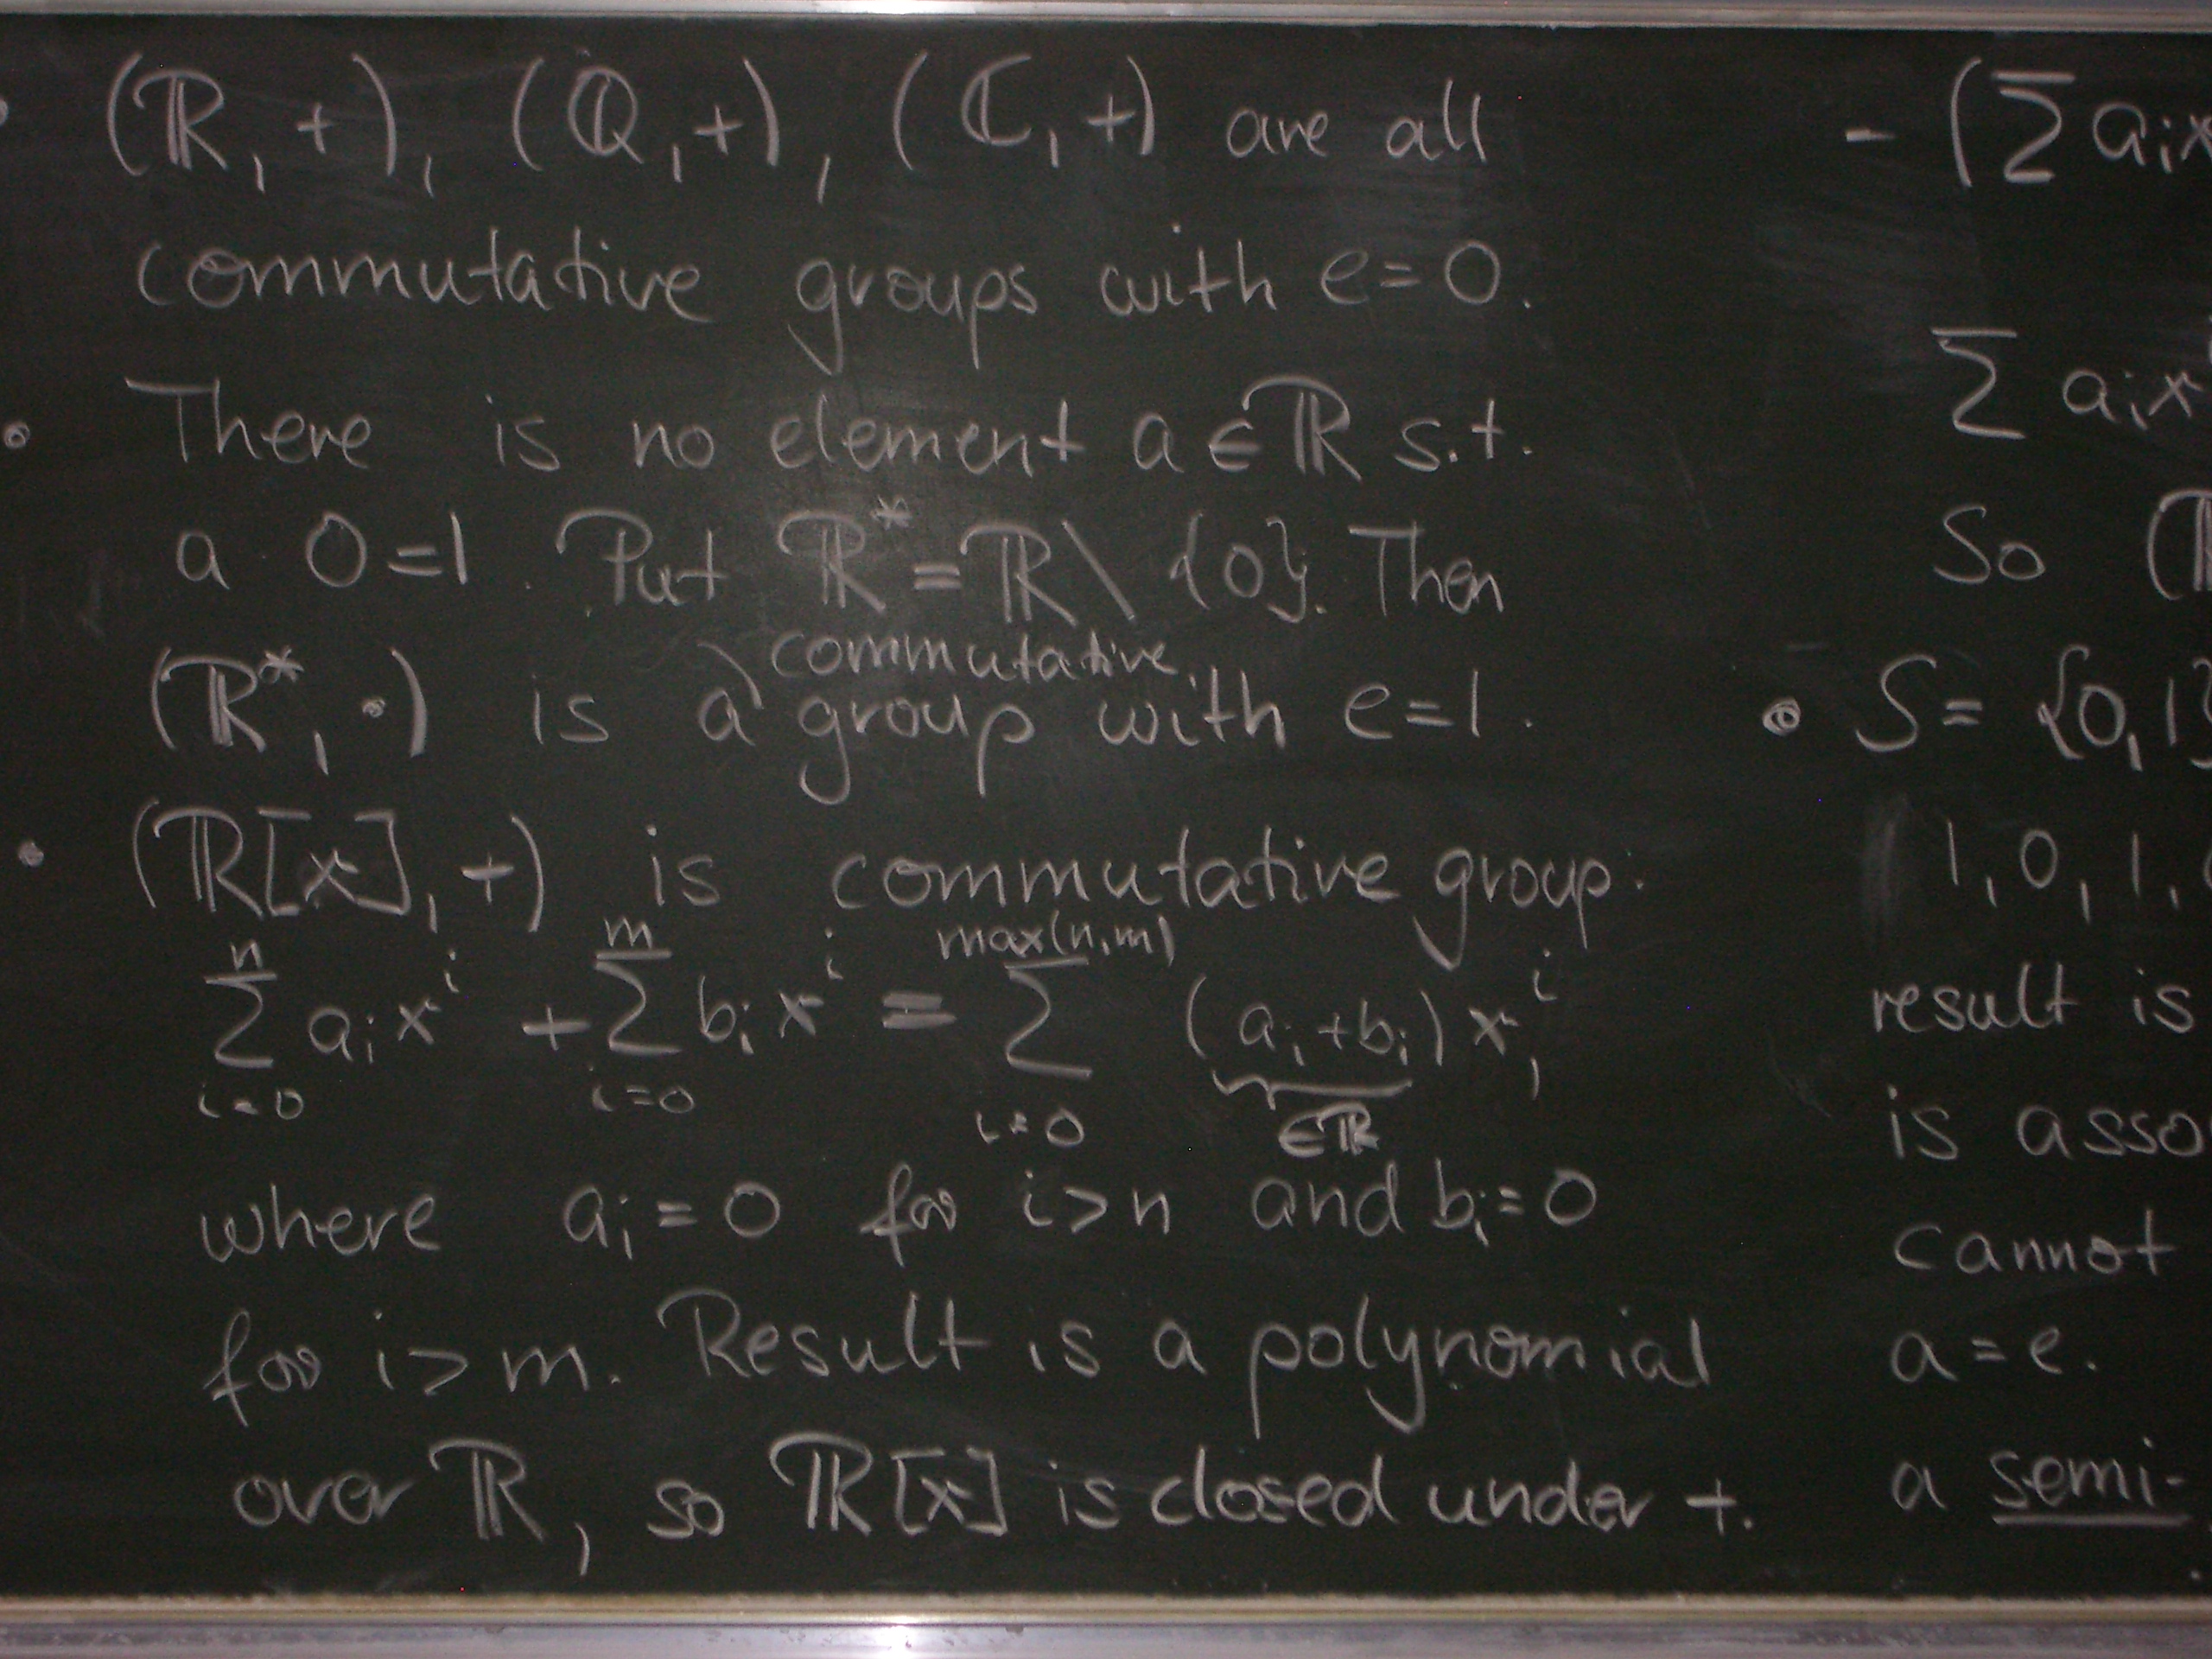 • (ℝ, +), (ℚ, +), (ℂ, +) are all
commutative groups with e=0.
• There is no element a∈ℝ s.t.
a · 0=1. Put ℝ* = ℝ \ {0}. Then
commutative
(ℝ*, ·) is a group with e=1.
• (ℝ[x], +) is commutative group.
n m max(n,m)
∑ aᵢxⁱ + ∑ bᵢxⁱ = ∑ (aᵢ+bᵢ)xⁱ,
i=0 i=0 i=0 ∈ℝ
where aᵢ=0 for i>n and bᵢ=0
for i>m. Result is a polynomial
over ℝ, so ℝ[x] is closed under +.
- (∑ aᵢx
∑ aᵢx
So (
• S= {0,1}
1, 0, 1,
result is
is asso
cannot
a=e.
a semi-